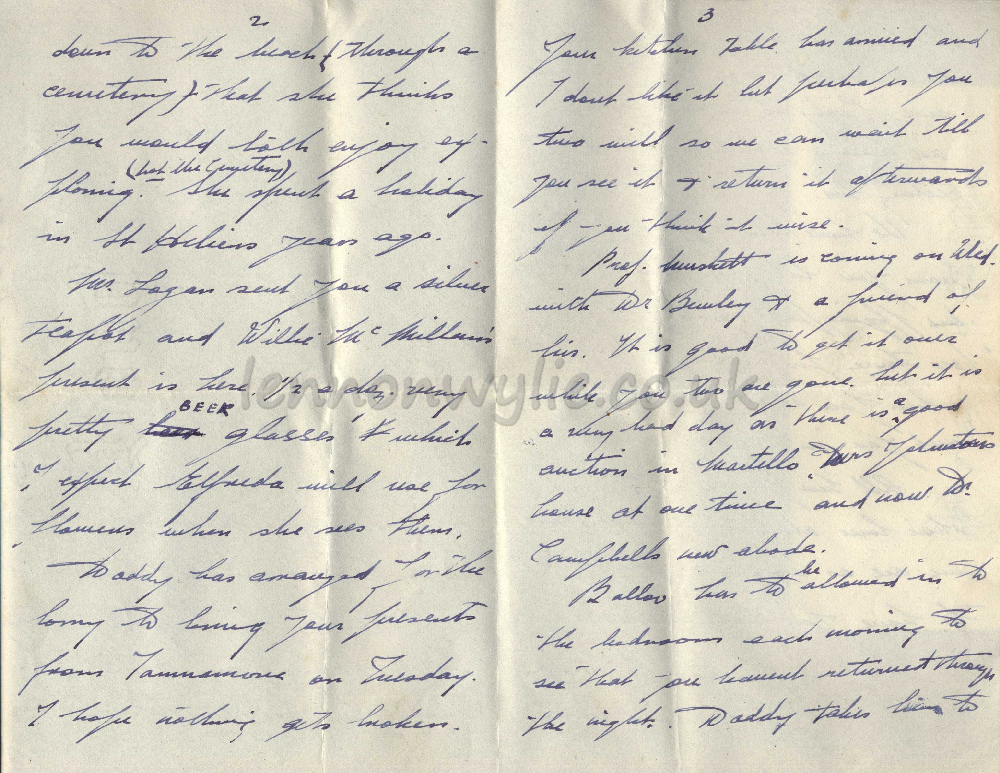 2
down to the beach (through a
cemetery) that she thinks
you would both enjoy ex-
(not the cemetery)
ploring. She spent a holiday
in St Heliers years ago.
Mr. Logan sent you a silver
teapot and Willie McMillan's
present is here. 1/2 a doz. very
BEER
pretty glasses & which
I expect Elfreda will use for
flowers when she sees them.
Daddy has arranged for the
lorry to bring your presents
from Tamnamore on Tuesday.
I hope nothing gets broken.
3
Your kitchen table has arrived and
I dont like it but perhaps you
two will so we can wait till
you see it & return it afterwards
if you think it wise.
Prof. Muskett is coming on Wed.
with Dr Buxley & a friend of
his. It is good to get it over
while you two are gone but it is
a very bad day as there is a good
auction in Martello, Mrs Johnstons
house at one time and now Dr.
Campbells new abode.
has to be allowed in to
the bedrooms each morning to
see that you havent returned through
the night. Daddy takes him to
lennonwylie.co.uk